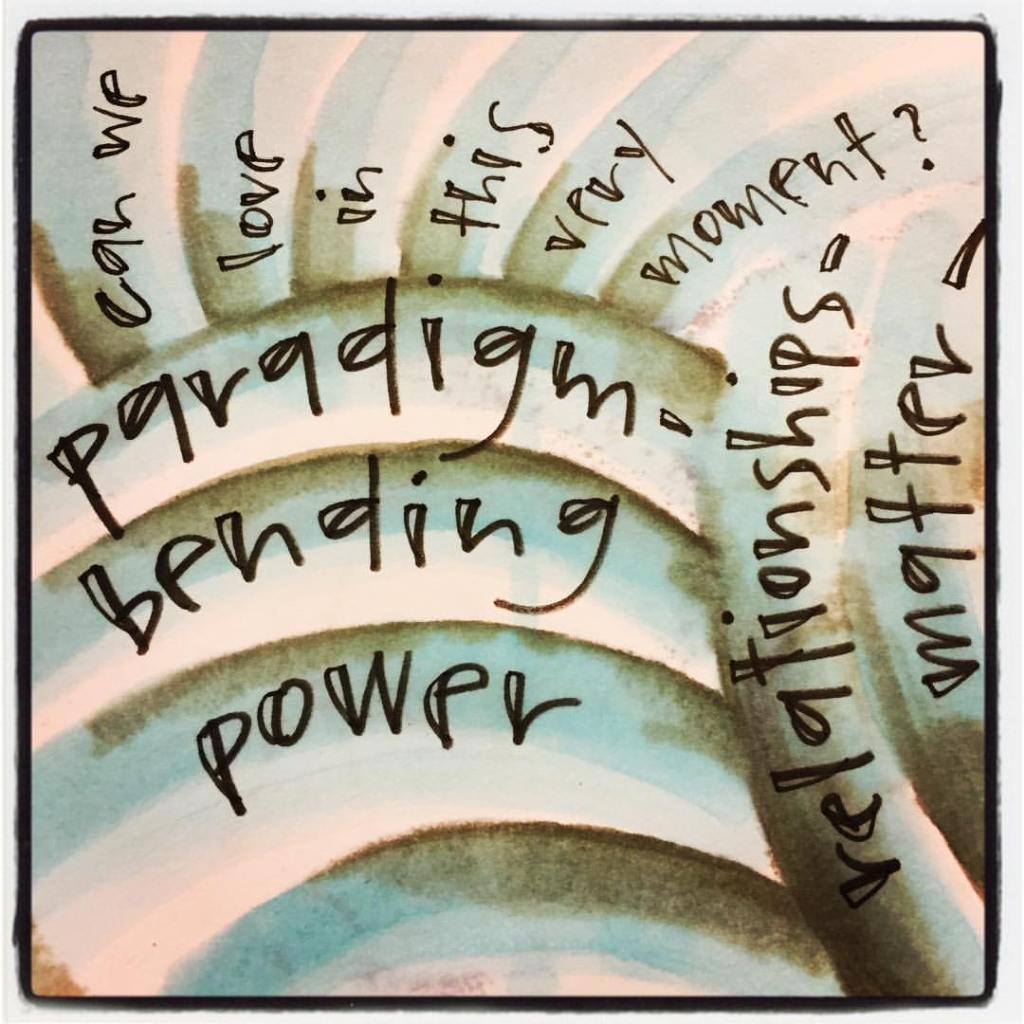 can we
love
in
this
very
moment?
paradigm-
bending
power
relationships-
matter-